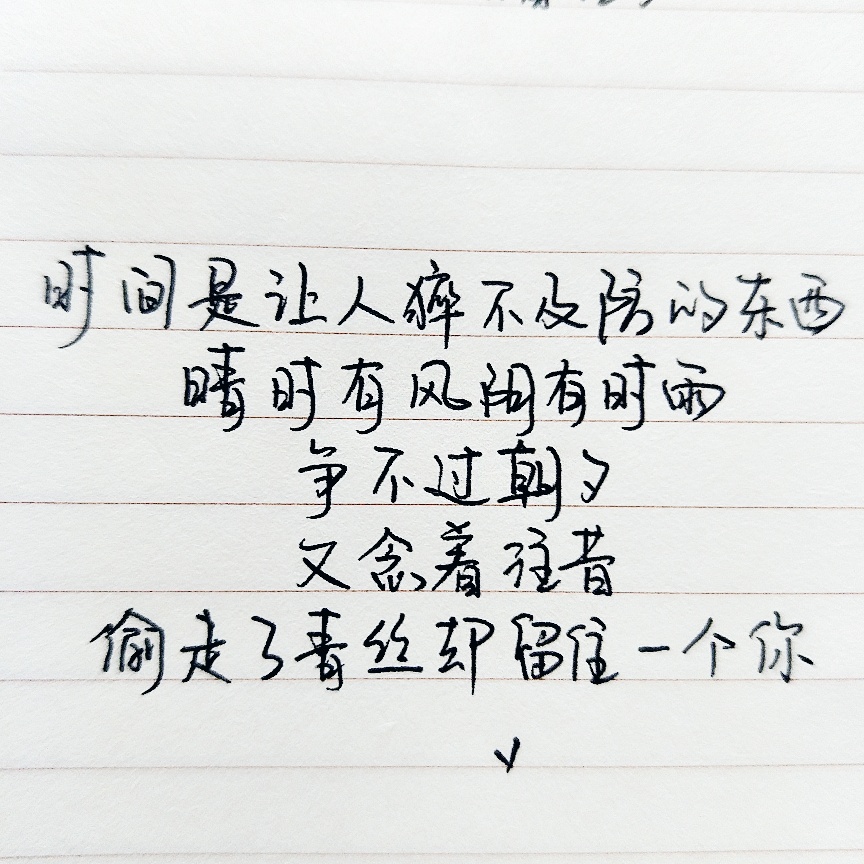 时间是让人猝不及防的东西
晴时有风阴有时雨
争不过朝夕
又念着往昔
偷走了青丝却留住一个你